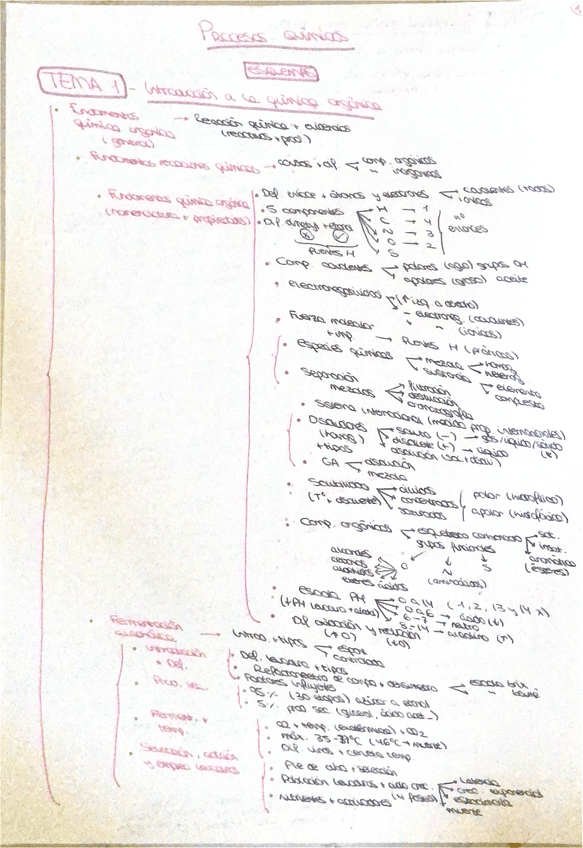 Procesos químicos
ESQUEMA
TEMA 1 - Introducción a la química orgánica
• Fundamentos química orgánica (general) → Reacción química + evidencias (reactivos + prod)
• Fundamentos reacciones químicas → causas + dif comp. orgánicos
" inorgánicos
• Fundamentos química orgánica (nomenclatura + propiedades)
• Def enlace + átomos y electrones covalentes (todos)
iónicos
• 5 componentes H → 1
C → 4
N → 3
O → 2
S
nº enlaces
• Dif dimetil + etanol
Puentes H
• Comp. covalentes polares (agua) grupos OH
apolares (grasa) aceite
• electronegatividad (↑ izq a derecha)
- electroneg. (covalentes)
+ " (iónicas)
• Fuerza molecular + imp. → Puentes H (prácticas)
• Especies químicas mezcla homog
heterog
sustancia elemento
compuesto
• Separación mezclas filtración
destilación
cromatografía
• Sistema internacional (medida prop internacionales)
• Disoluciones (homog) + tipos
soluto (-) → gas/líquido/sólido
disolvente (+) → líquido (*)
disolución (sol + disolv)
• GA disolución
mezcla
• Solubilidad (Tª + disolvente) diluidos
concentrados
saturados
polar (hidrofílico)
apolar (hidrofóbico)
• Comp. orgánicos esqueleto carbonado sat.
insat.
aromático (ésteres)
grupos funcionales
O N S
(aminoácidos)
alcoholes
cetonas
aldehídos
ésteres ácidos
• Escala PH 0 a 14 (-1, 2, 13 y 14 x)
(+PH levadura + alcohol) 0 a 6 → ácido (↓)
6-7 → neutro
8-14 → alcalino (↑)
• Dif oxidación y reducción
(+O) (-O)
• Fermentación alcohólica → Introd. + tipos espon
controlada
• Introducción + Def.
• Def. levadura + tipos
• Refractómetro de campo + densímetro escala brix
" baumé
• Prod. sec.
Factores influyentes
• 95% (30 etapas) azúcar a etanol
• 5% prod sec (glicerol, ácido acet...)
• Ferment. + temp.
• O2 + temp. (exotérmica) + CO2
• máx. 35-37ºC (40ºC → muerte)
• Dif vinos + cerveza temp.
• Selección, adición y empleo levaduras
• Pie de cuba + selección
• Población levaduras + ciclo crec. (4 fases)
• Latencia
• crec. exponencial
• estacionaria
• muerte
• Nutrientes + activadores